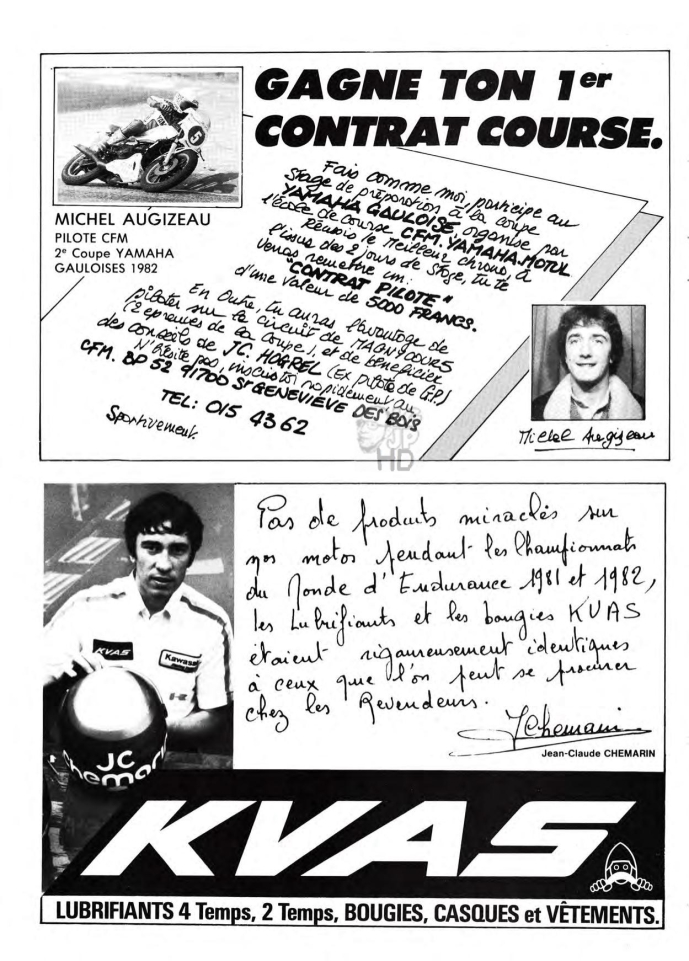 GAGNE TON 1er
CONTRAT COURSE.
5
MICHEL AUGIZEAU
PILOTE CFM
2e Coupe YAMAHA
GAULOISES 1982
Fais comme moi, participe au
Stage de préparation à la coupe
YAMAHA GAULOISE organisé par
l'école de course CFM.YAMAHA.MOTUL
Réussis le meilleur chrono, à
l'issue des 2 jours de Stage, tu te
verras remettre un:
"CONTRAT PILOTE"
d'une valeur de 5000 FRANCS.
En Outre, tu auras l'avantage de
piloter sur le circuit de MAGNY COURS
(2 epreuves de la Coupe), et de beneficier
des conseils de JC. HOGREL (Ex pilote de G.P.)
N'hésite pas, inscris toi rapidement au
CFM. BP 52 91700 St GENEVIEVE DES BOIS
TEL: 015 43 62
Sportivement.
Michel Augizeau
JP
HD
Pas de produits miracles sur
nos motos pendant les Championnats
du Monde d'Endurance 1981 et 1982,
les Lubrifiants et les bougies KVAS
étaient rigoureusement identiques
à ceux que l'on peut se procurer
chez les Revendeurs.
JChemarin
Jean-Claude CHEMARIN
KVAS
Kawasaki
JC
Chemarin
KVAS
LUBRIFIANTS 4 Temps, 2 Temps, BOUGIES, CASQUES et VÊTEMENTS.